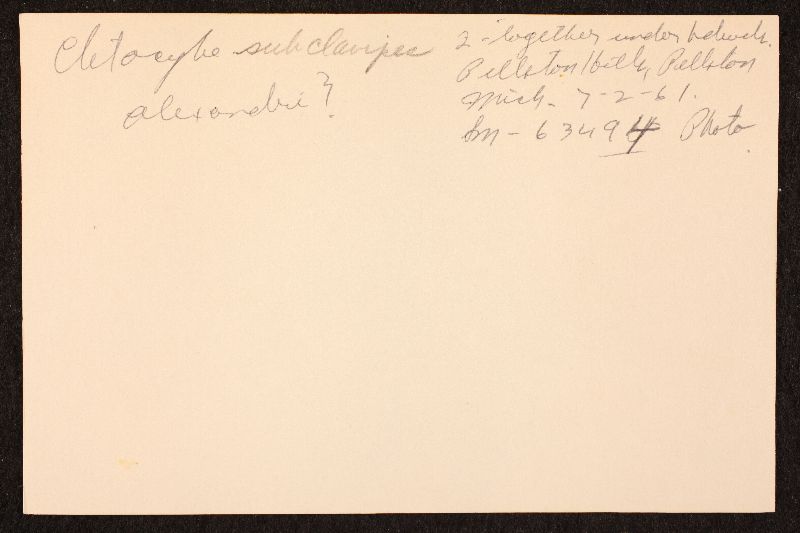 Clitocybe subclavipes
alexandri?
2 - together under hdwds.
Pellston Hills, Pellston
Mich. 7-2-61.
Sm - 63494 Photo